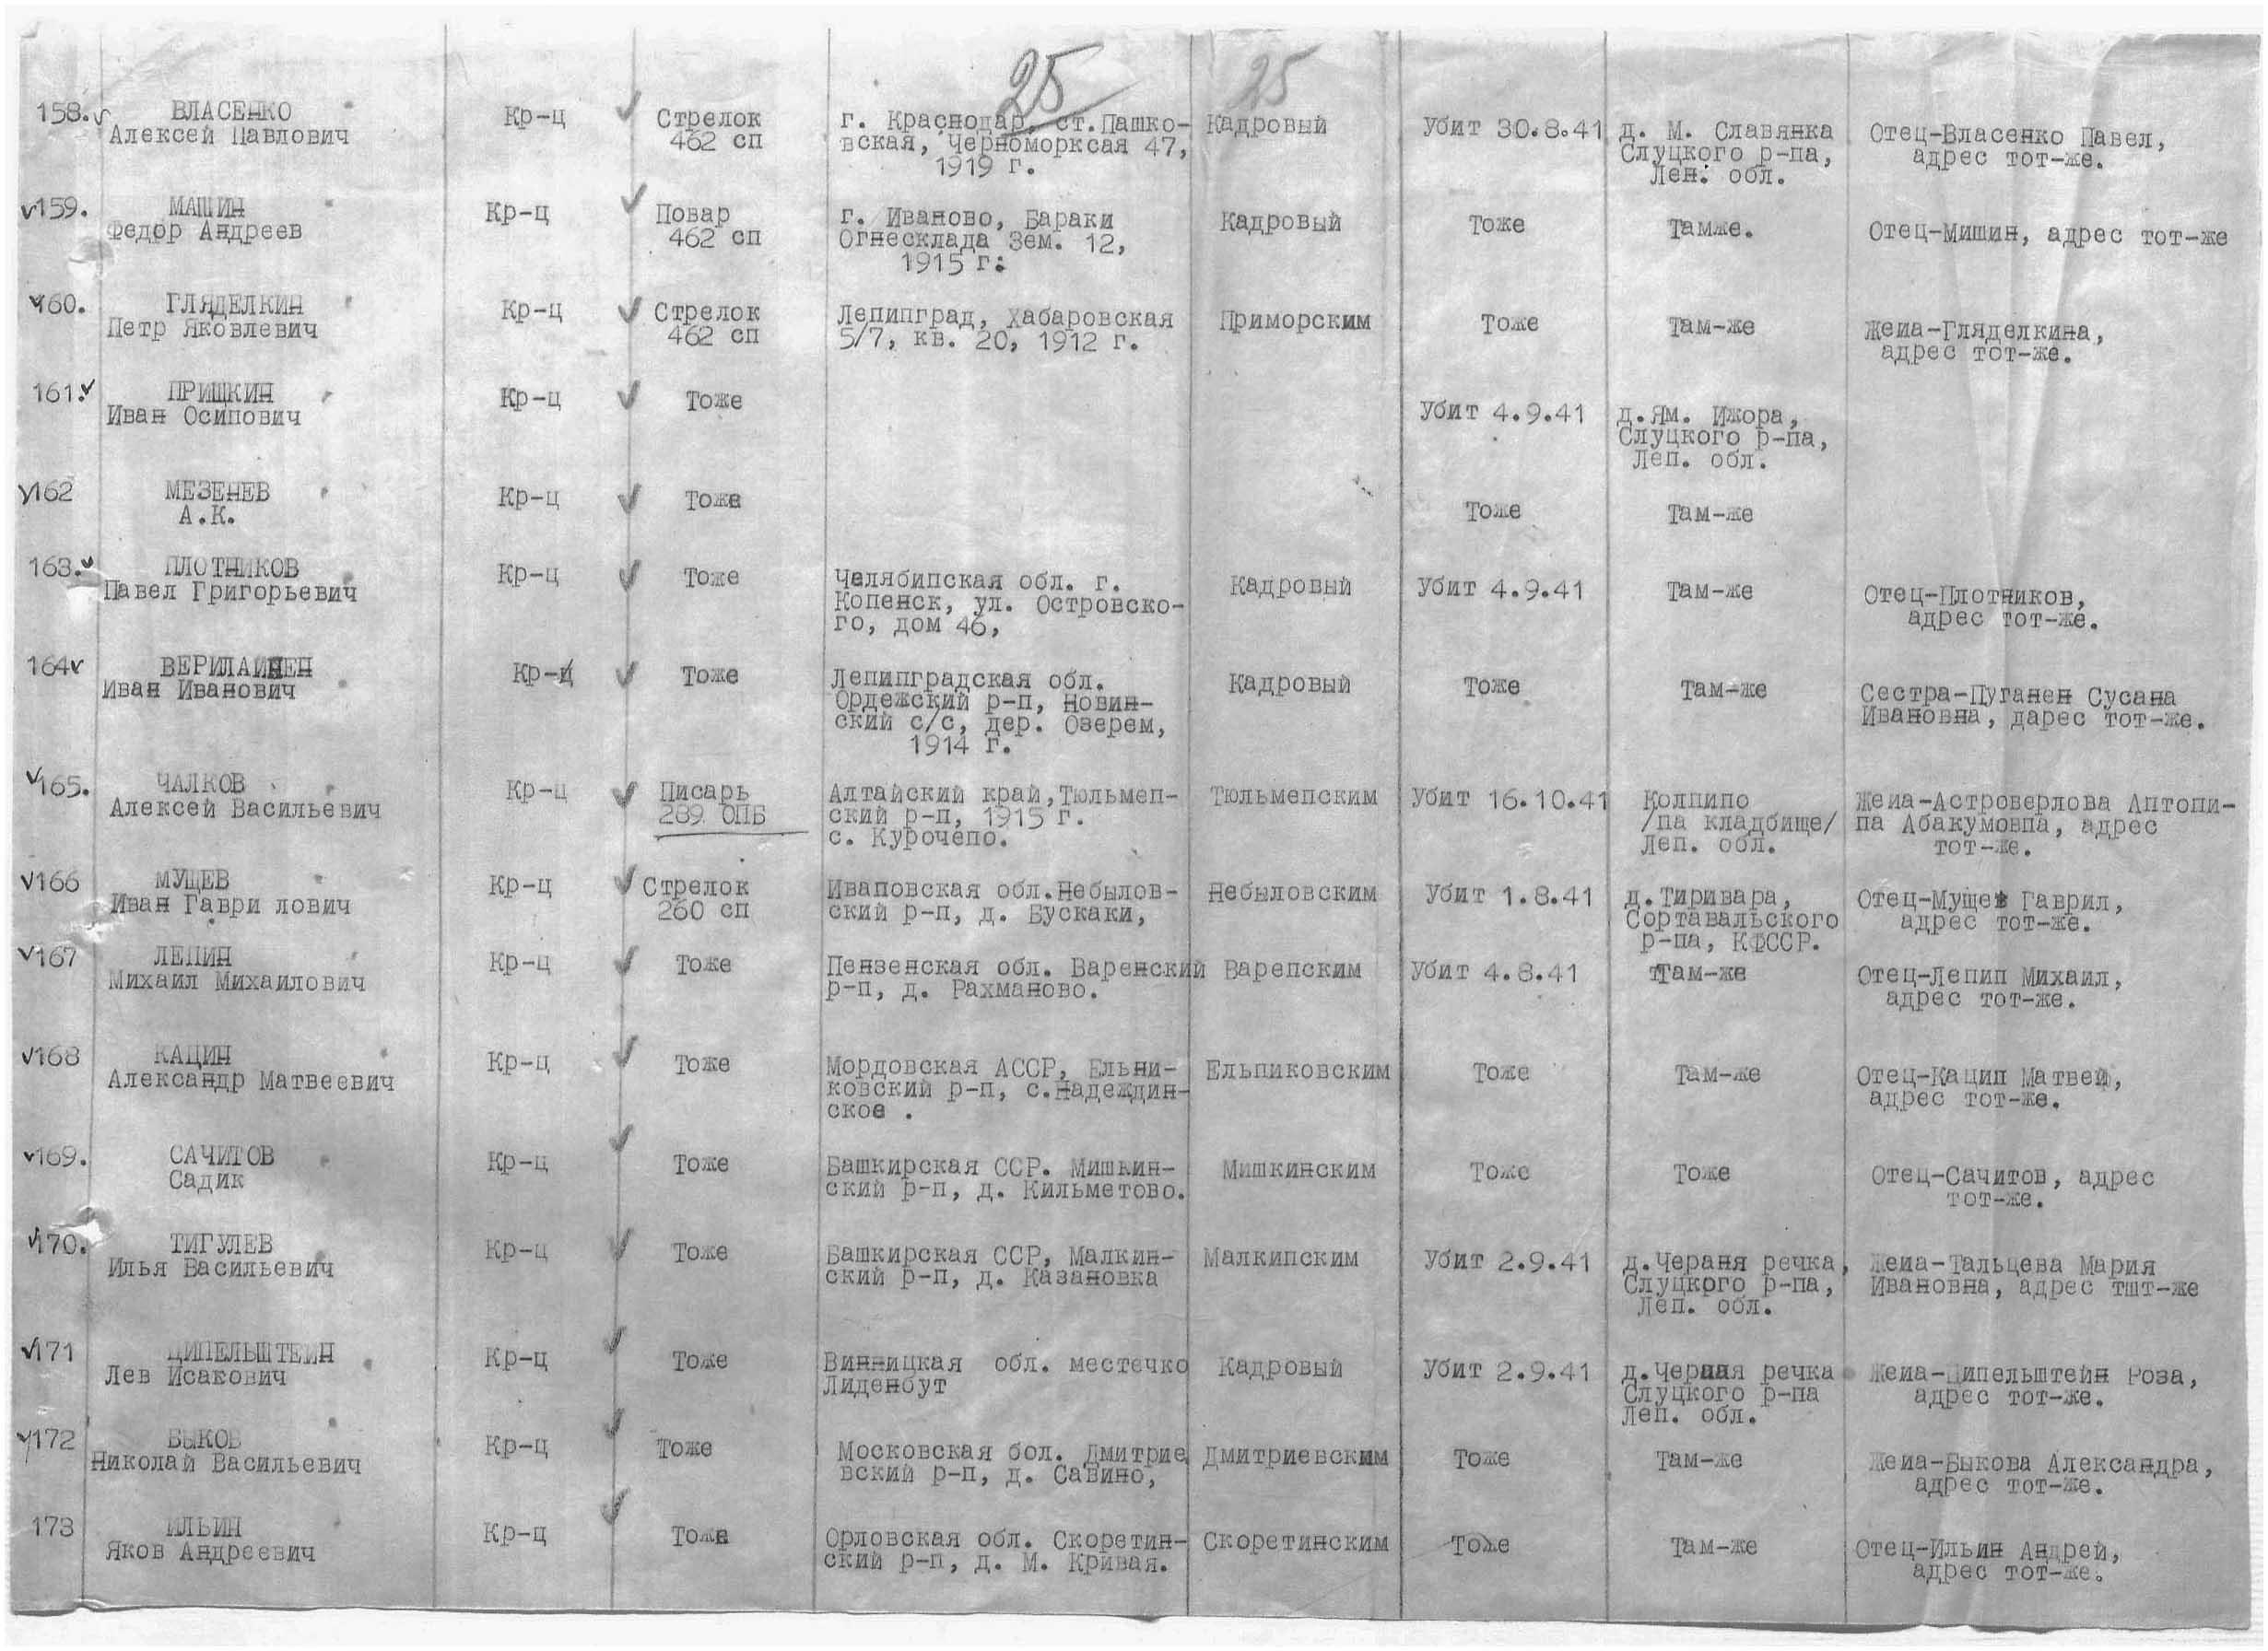 25 25
158. ВЛАСЕНКО
Алексей Павлович
Кр-ц
Стрелок
462 сп
г. Краснодар, ст.Пашко-
вская, Черноморксая 47,
1919 г.
Кадровый
Убит 30.8.41
д. М. Славянка
Слуцкого р-па,
Лен. обл.
Отец-Власенко Павел,
адрес тот-же.
159. МАШИН
Федор Андреев
Кр-ц
Повар
462 сп
г. Иваново, Бараки
Огнесклада Зем. 12,
1915 г.
Кадровый
Тоже
Тамже.
Отец-Мишин, адрес тот-же
160. ГЛЯДЕЛКИН
Петр Яковлевич
Кр-ц
Стрелок
462 сп
Лепипград, Хабаровская
5/7, кв. 20, 1912 г.
Приморским
Тоже
Там-же
Жеиа-Гляделкина,
адрес тот-же.
161. ПРИЩКИН
Иван Осипович
Кр-ц
Тоже
Убит 4.9.41
д.Ям. Ижора,
Слуцкого р-па,
Леп. обл.
162 МЕЗЕНЕВ
А.К.
Кр-ц
Тоже
Тоже
Там-же
163. ПЛОТНИКОВ
Павел Григорьевич
Кр-ц
Тоже
Челябипская обл. г.
Копенск, ул. Островско-
го, дом 46,
Кадровый
Убит 4.9.41
Там-же
Отец-Плотников,
адрес тот-же.
164 ВЕРИЛАИНЕН
Иван Иванович
Кр-ц
Тоже
Лепипградская обл.
Ордежский р-п, Новин-
ский с/с, дер. Озерем,
1914 г.
Кадровый
Тоже
Там-же
Сестра-Пуганен Сусана
Ивановна, дарес тот-же.
165. ЧАЛКОВ
Алексей Васильевич
Кр-ц
Писарь
289 ОПБ
Алтайский край,Тюльмеп-
ский р-п, 1915 г.
с. Курочепо.
Тюльмепским
Убит 16.10.41
Колпипо
/па кладбище/
Леп. обл.
Жеиа-Астроверлова Аптопи-
па Абакумовпа, адрес
тот-же.
166 МУЩЕВ
Иван Гаври лович
Кр-ц
Стрелок
260 сп
Иваповская обл.Небылов-
ский р-п, д. Бускаки,
Небыловским
Убит 1.8.41
д.Тиривара,
Сортавальского
р-па, КФССР.
Отец-Мущев Гаврил,
адрес тот-же.
167 ЛЕПИН
Михаил Михаилович
Кр-ц
Тоже
Пензенская обл. Варенский
р-п, д. Рахманово.
Варепским
Убит 4.8.41
Там-же
Отец-Лепип Михаил,
адрес тот-же.
168 КАЦИН
Александр Матвеевич
Кр-ц
Тоже
Мордовская АССР, Ельни-
ковский р-п, с.Надеждин-
ское .
Ельпиковским
Тоже
Там-же
Отец-Кацип Матвей,
адрес тот-же.
169. САЧИТОВ
Садик
Кр-ц
Тоже
Башкирская ССР. Мишкин-
ский р-п, д. Кильметово.
Мишкинским
Тоже
Тоже
Отец-Сачитов, адрес
тот-же.
170. ТИГУЛЕВ
Илья Васильевич
Кр-ц
Тоже
Башкирская ССР, Малкин-
ский р-п, д. Казановка
Малкипским
Убит 2.9.41
д.Чераня речка,
Слуцкого р-па,
Леп. обл.
Жеиа-Тальцева Мария
Ивановна, адрес тшт-же
171 ЦИПЕЛЬШТЕИН
Лев Исакович
Кр-ц
Тоже
Винницкая обл. местечко
Лиденбут
Кадровый
Убит 2.9.41
д.Черная речка
Слуцкого р-па
Леп. обл.
Жеиа-Ципельштейн Роза,
адрес тот-же.
172 БЫКОВ
Николай Васильевич
Кр-ц
Тоже
Московская бол. Дмитрие
вский р-п, д. Савино,
Дмитриевским
Тоже
Там-же
Жеиа-Быкова Александра,
адрес тот-же.
173 ИЛЬИН
Яков Андреевич
Кр-ц
Тоже
Орловская обл. Скоретин-
ский р-п, д. М. Кривая.
Скоретинским
Тоже
Там-же
Отец-Ильин Андрей,
адрес тот-же.